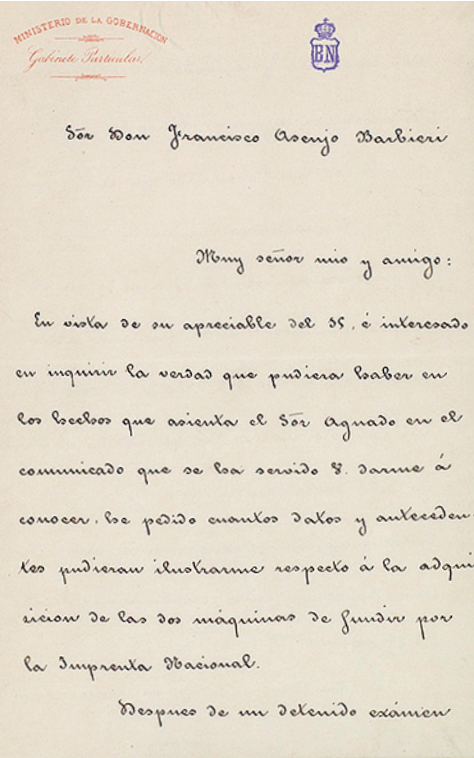 MINISTERIO DE LA GOBERNACION
Gabinete Particular.
BN
Sōr Don Francisco Asenjo Barbieri
Muy señor mio y amigo:
En vista de su apreciable del 15, é interesado
en inquirir la verdad que pudiera haber en
los hechos que asienta el Sōr Aguado en el
comunicado que se ha servido V. darme á
conocer, he pedido cuantos datos y anteceden
tes pudieran ilustrarme respecto á la adqui
sicion de las dos máquinas de fundir por
la Imprenta Nacional.
Despues de un detenido exámen